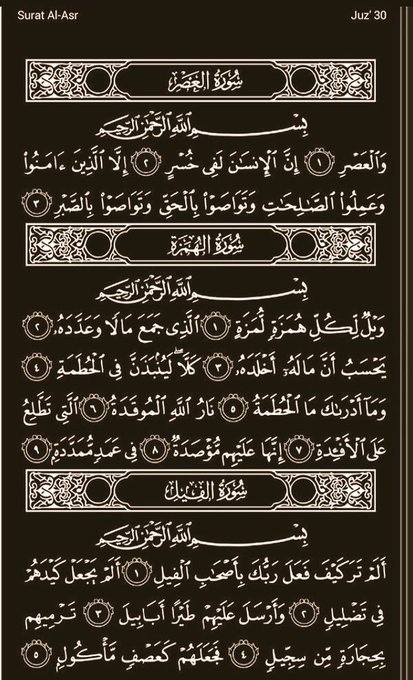 Surat Al-Asr Juz' 30
سُورَةُ العَصۡرِ
بِسۡمِ ٱللَّهِ ٱلرَّحۡمَٰنِ ٱلرَّحِيمِ
وَٱلۡعَصۡرِ ١ إِنَّ ٱلۡإِنسَٰنَ لَفِي خُسۡرٍ ٢ إِلَّا ٱلَّذِينَ ءَامَنُواْ
وَعَمِلُواْ ٱلصَّٰلِحَٰتِ وَتَوَاصَوۡاْ بِٱلۡحَقِّ وَتَوَاصَوۡاْ بِٱلصَّبۡرِ ٣
سُورَةُ الهُمَزَةِ
بِسۡمِ ٱللَّهِ ٱلرَّحۡمَٰنِ ٱلرَّحِيمِ
وَيۡلٞ لِّكُلِّ هُمَزَةٖ لُّمَزَةٍ ١ ٱلَّذِي جَمَعَ مَالٗا وَعَدَّدَهُۥ ٢
يَحۡسَبُ أَنَّ مَالَهُۥٓ أَخۡلَدَهُۥ ٣ كَلَّاۖ لَيُنۢبَذَنَّ فِي ٱلۡحُطَمَةِ ٤
وَمَآ أَدۡرَىٰكَ مَا ٱلۡحُطَمَةُ ٥ نَارُ ٱللَّهِ ٱلۡمُوقَدَةُ ٦ ٱلَّتِي تَطَّلِعُ
عَلَى ٱلۡأَفۡـِٔدَةِ ٧ إِنَّهَا عَلَيۡهِم مُّؤۡصَدَةٞ ٨ فِي عَمَدٖ مُّمَدَّدَةِۭ ٩
سُورَةُ الفِيلِ
بِسۡمِ ٱللَّهِ ٱلرَّحۡمَٰنِ ٱلرَّحِيمِ
أَلَمۡ تَرَ كَيۡفَ فَعَلَ رَبُّكَ بِأَصۡحَٰبِ ٱلۡفِيلِ ١ أَلَمۡ يَجۡعَلۡ كَيۡدَهُمۡ
فِي تَضۡلِيلٖ ٢ وَأَرۡسَلَ عَلَيۡهِمۡ طَيۡرًا أَبَابِيلَ ٣ تَرۡمِيهِم
بِحِجَارَةٖ مِّن سِجِّيلٖ ٤ فَجَعَلَهُمۡ كَعَصۡفٖ مَّأۡكُولِۭ ٥